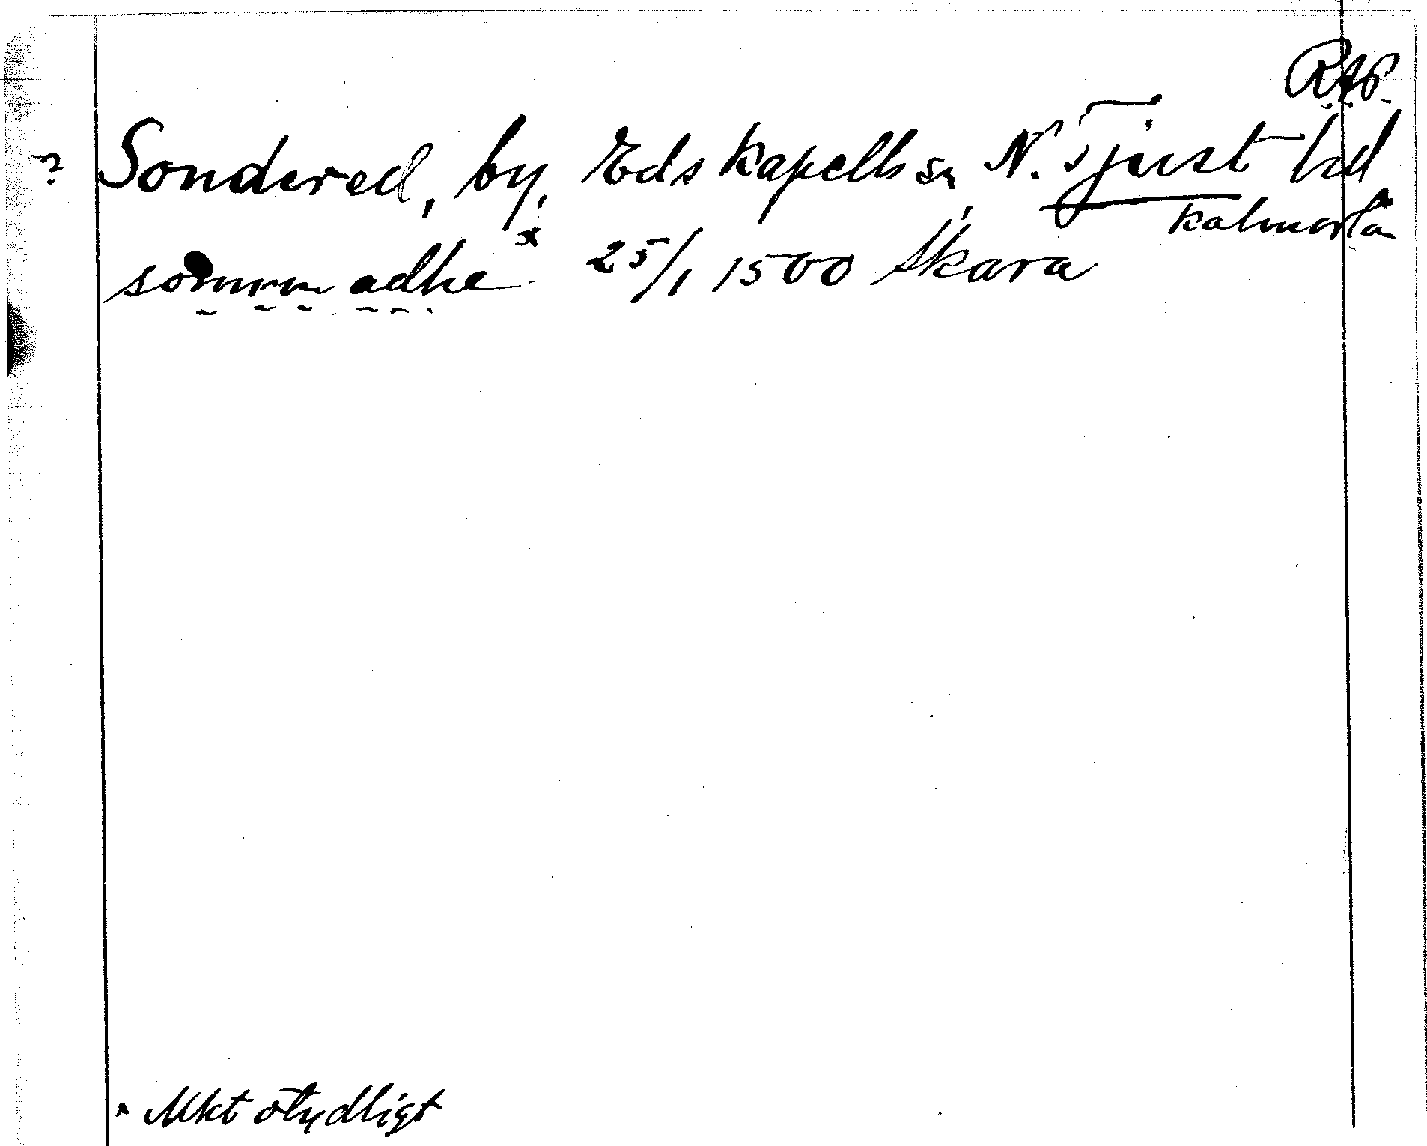 RAP.
? Sondered, by, Eds kapells sn, N. Tjust hd
Kalmar län
adhe x 25/1 1500 Skara
x Mkt otydligt